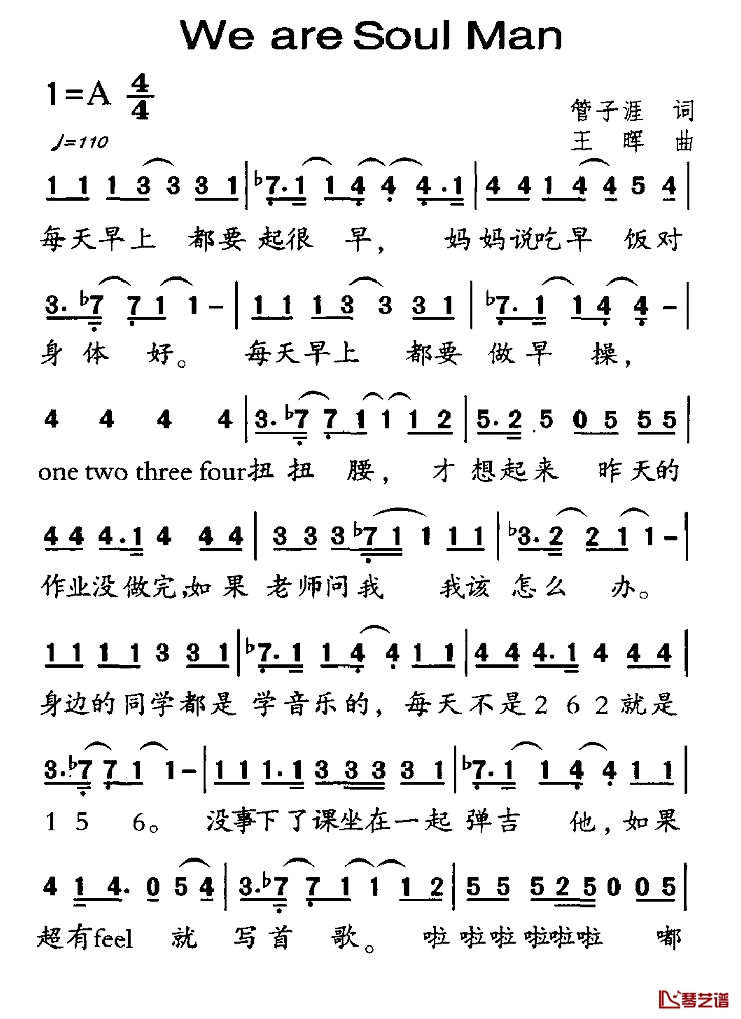 We are Soul Man
1=A 4/4
管子涯 词
♩=110
王 晖 曲
1 1 1 3 3 3 3 1 | ♭7. 1 1 4 4 4. 1 | 4 4 1 4 4 5 4 |
每天早上 都要起很 早， 妈妈说吃早 饭对
3. ♭7 7 1 1 - | 1 1 1 3 3 3 3 1 | ♭7. 1 1 4 4 - |
身体 好。 每天早上 都要 做早 操，
4 4 4 4 | 3. ♭7 7 1 1 1 1 2 | 5. 2 5 0 5 5 5 |
one two three four扭扭 腰， 才想起来 昨天的
4 4 4. 1 4 4 4 | 3 3 3 ♭7 1 1 1 1 | ♭3. 2 2 1 1 - |
作业没做完,如果 老师问我 我该 怎么 办。
1 1 1 1 3 3 1 | ♭7. 1 1 4 4 1 1 | 4 4 4. 1 4 4 4 |
身边的同学都是 学音乐的， 每天不是2 6 2就是
3. ♭7 7 1 1 - | 1 1 1. 1 3 3 3 3 1 | ♭7. 1 1 4 4 1 1 |
1 5 6。 没事下了课坐在一起 弹吉 他，如果
4 1 4. 0 5 4 | 3. ♭7 7 1 1 1 2 | 5 5 5 2 5 0 0 5 |
超有feel 就 写首 歌。 啦 啦啦 啦啦啦 嘟
琴艺谱